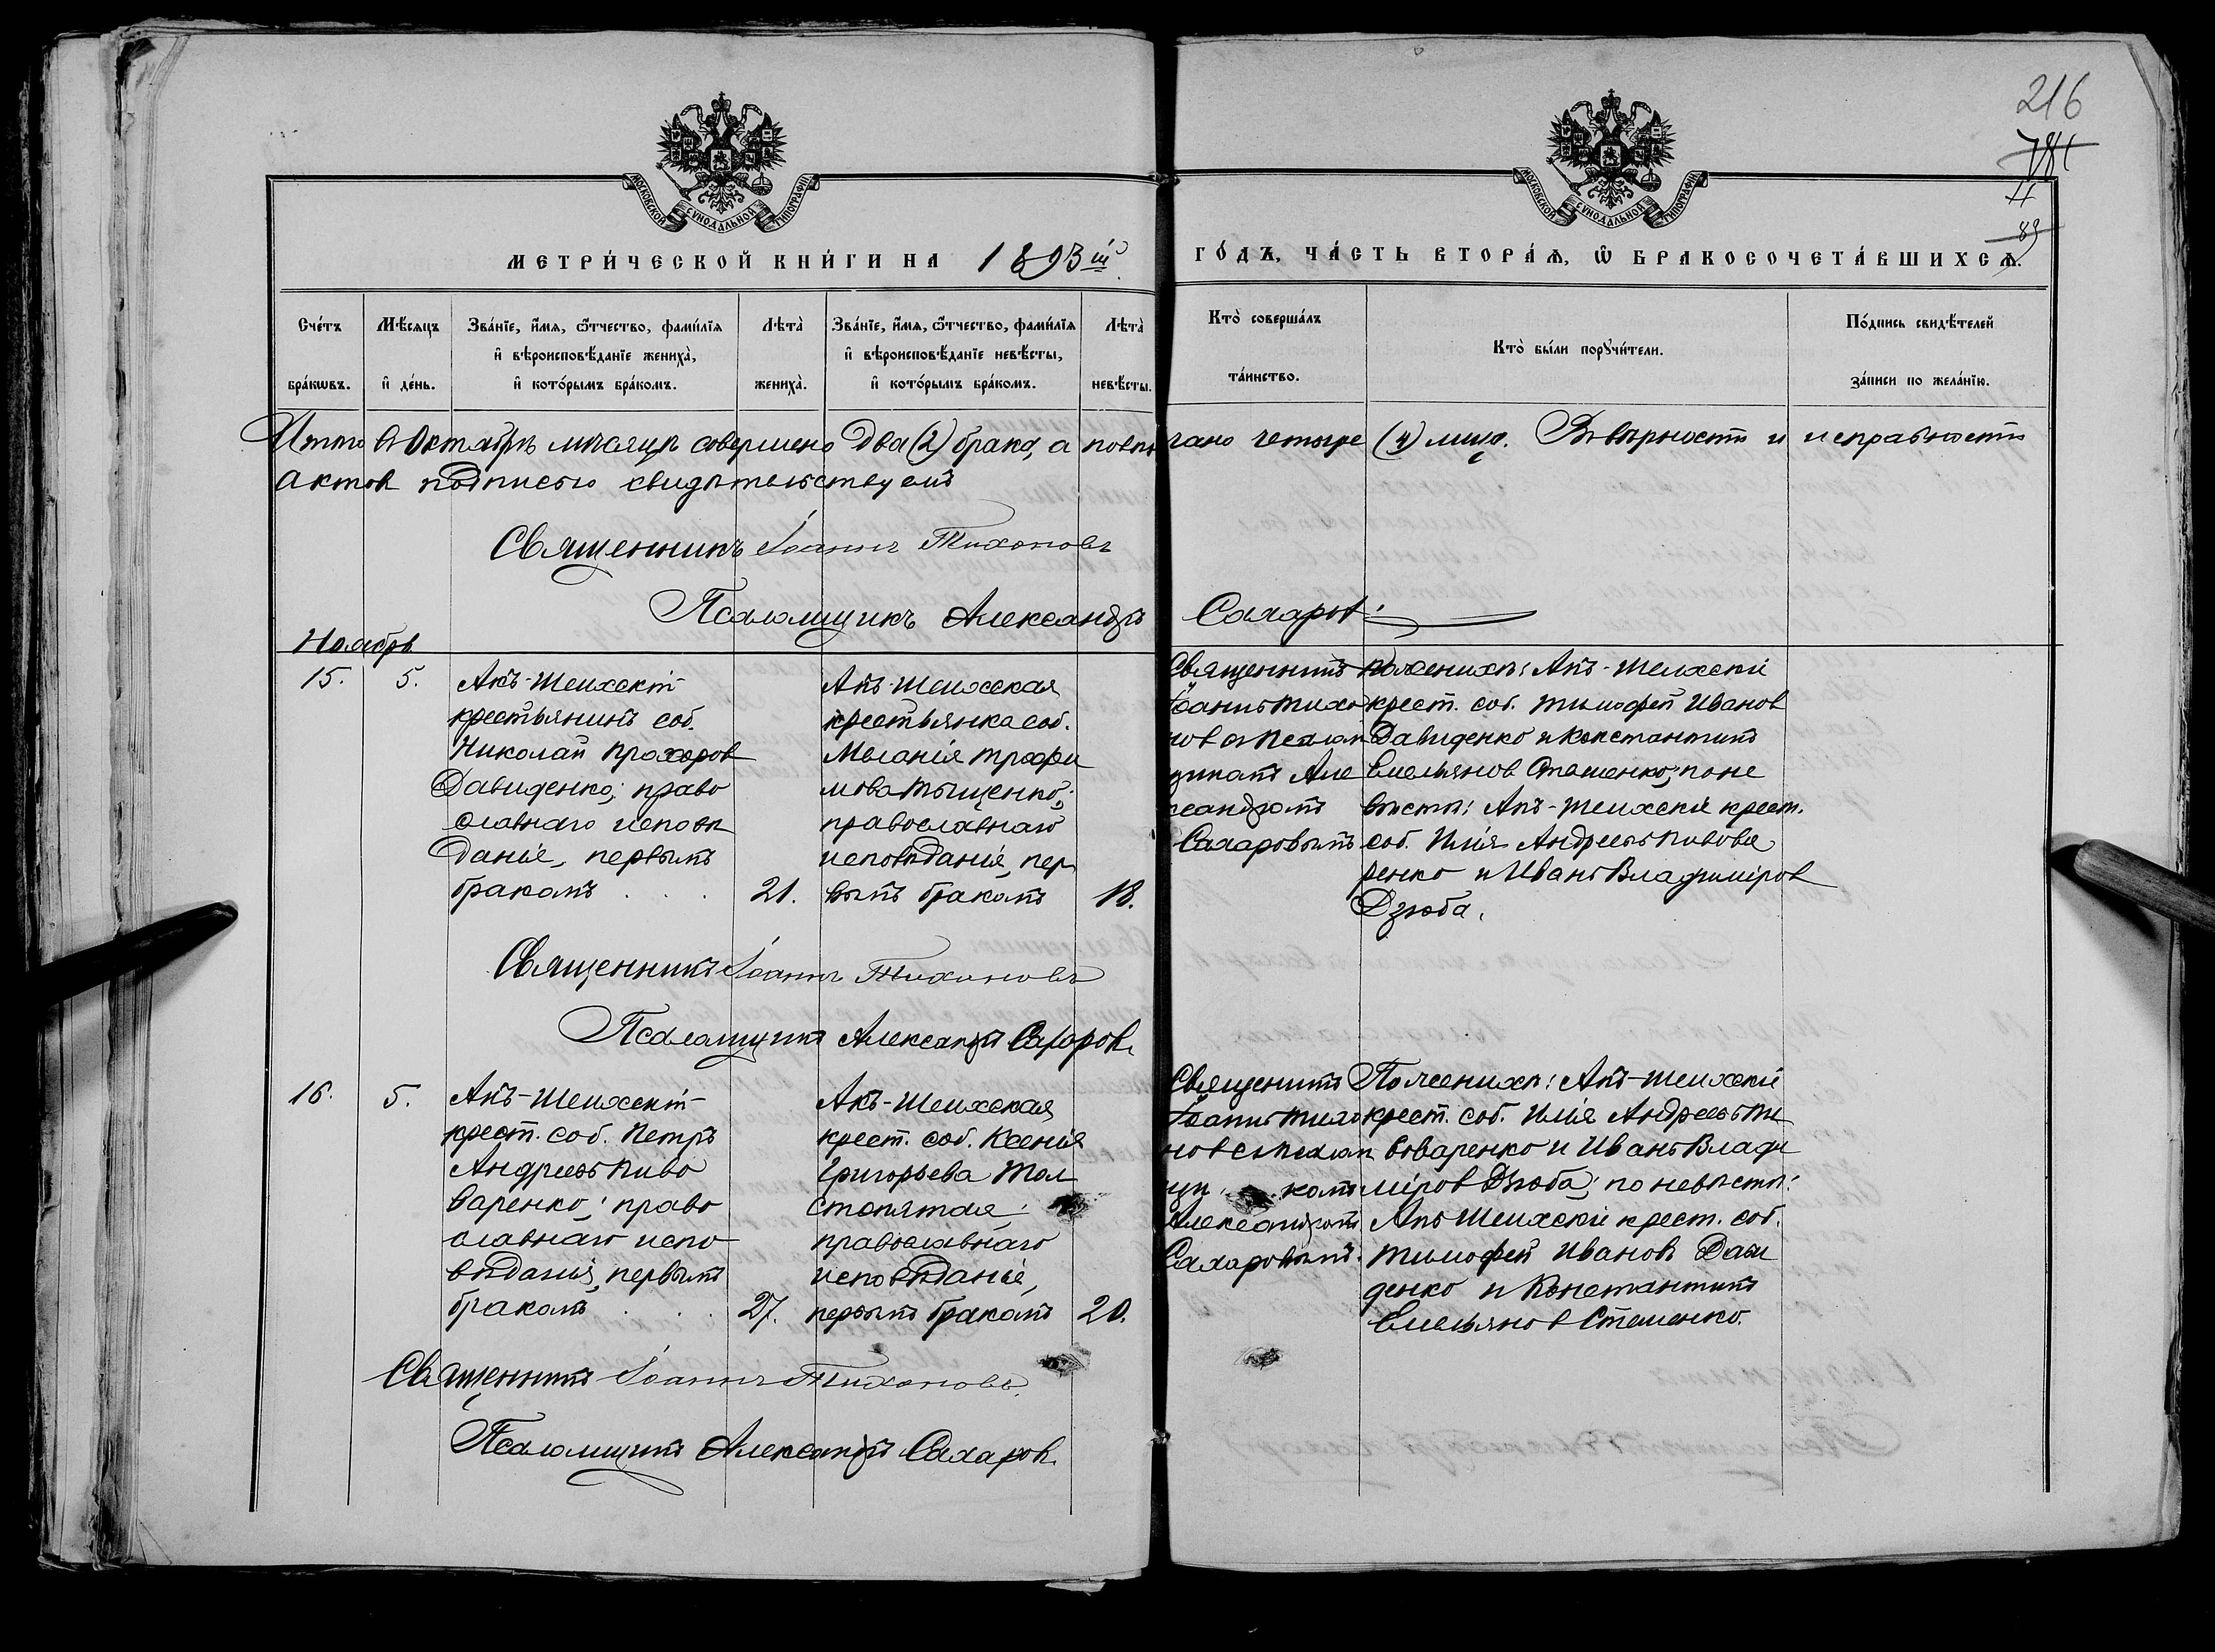 216
89
МОСКОВСКОЙ СУНОДАЛЬНОЙ ТИПОГРАФІИ
МОСКОВСКОЙ СУНОДАЛЬНОЙ ТИПОГРАФІИ
МЕТРИ́ЧЕСКОЙ КНИ́ГИ НА 1893ій ГО́ДЪ, ЧА́СТЬ ВТОРА́Ѧ, Ѿ БРАКОСОЧЕТА́ВШИХСѦ.
Сче́тъ бра́кѡвъ.
Мѣ́сѧцъ и҆ де́нь.
Зва́нїе, и҆́мѧ, ѻ҆́тчество, фами́лїѧ
и҆ вѣроисповѣ́данїе жениха̀,
и҆ кото́рымъ бра́комъ.
Лѣта̀ жениха̀.
Зва́нїе, и҆́мѧ, ѻ҆́тчество, фами́лїѧ
и҆ вѣроисповѣ́данїе невѣ́сты,
и҆ кото́рымъ бра́комъ.
Лѣта̀ невѣ́сты.
Кто̀ соверша́лъ
та́инство.
Кто̀ бы́ли порꙋчи́тели.
По́дпись свидѣ́телей
за́писи по жела́нїю.
Итого в Октябрѣ мѣсяцѣ совершено два (2) брака, а повѣнчано четыре (4) лица. Въ вѣрности и исправности
актов подписью свидѣтельствуемъ
Священникъ Іоаннъ Тихоновъ
Псаломщикъ Александръ Сахаров.
Ноябрь
15.
5.
Акъ-Шеихскій
крестьянинъ соб.
Николай Прохоров
Давиденко; право
славнаго исповѣ
данія, первымъ
бракомъ . . .
21.
Акъ-Шеихская
крестьянка соб.
Меланія Трофи
мова Тыщенко;
православнаго
исповѣданія, пер
вымъ бракомъ
18.
Священникъ
Іоаннъ Тихо
нов съ псалом
щикомъ Але
ксандромъ
Сахаровымъ
По женихѣ: Акъ-Шеихскіе
крест. соб. Тимофей Иванов
Давиденко и Константинъ
Емельянов Сташенко; по не
вѣстѣ: Акъ-Шеихскіе крест.
соб. Илія Андреевъ Пивова
ренко и Иванъ Владиміров
Дзюба.
Священникъ Іоаннъ Тихоновъ
Псаломщикъ Александръ Сахаров.
16.
5.
Акъ-Шеихскій
крест. соб. Петръ
Андреевъ Пиво
варенко; право
славнаго испо
вѣданія, первымъ
бракомъ . . .
27.
Акъ-Шеихская
крест. соб. Ксенія
Григорьева Тол
стопятая;
православнаго
исповѣданія,
первымъ бракомъ
20.
Священникъ
Іоаннъ Тихо
нов съ псалом
щикомъ
Александромъ
Сахаровымъ.
По женихѣ: Акъ-Шеихскіе
крест. соб. Илія Андреевъ Пи
воваренко и Иванъ Влади
міров Дзюба; по невѣстѣ:
Акъ Шеихскіе крест. соб.
Тимофей Иванов Дави
денко и Константинъ
Емельянов Сташенко.
Священникъ Іоаннъ Тихоновъ.
Псаломщикъ Александръ Сахаров.